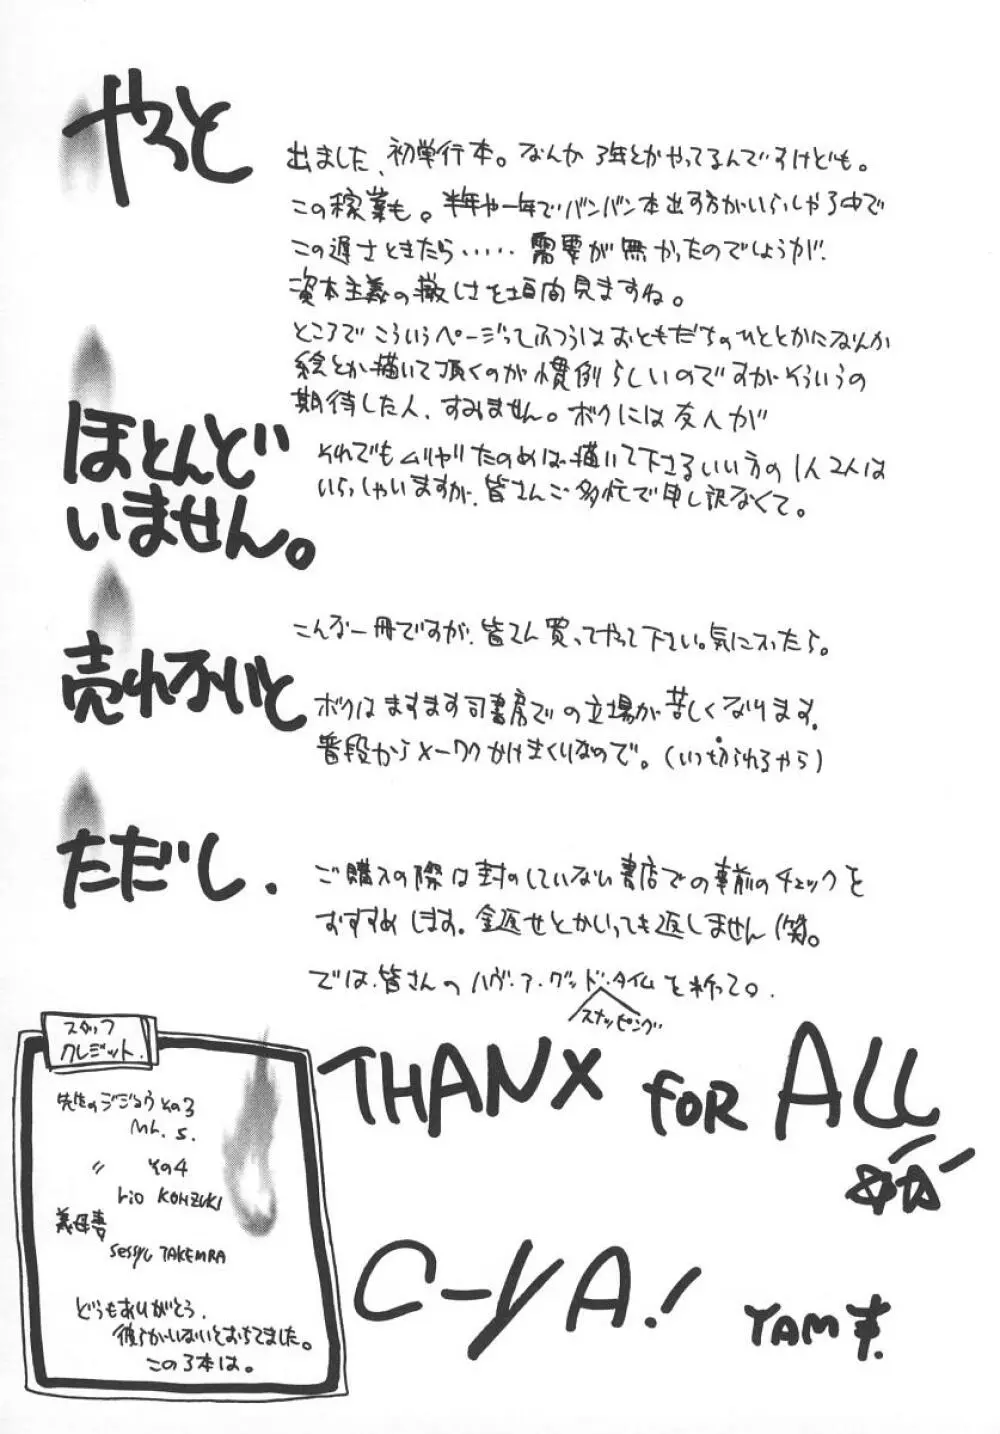 やっと
出ました、初単行本。なんか3年とかやってるんですけども。
この稼業も。半年や一年でバンバン本出す方がいらっしゃる中で
この遅さときたら・・・・・ 需要が無かったのでしょうが、
資本主義の厳しさを垣間見ますね。
ところでこういうページってふつうはおともだちのひととかになんか
絵とか描いて頂くのが慣例らしいのですがそういうの
期待した人、すみません。ボクには友人が
ほとんど
いません。
それでもムリヤリたのめば描いて下さるいい方の1人2人は
いらっしゃいますが、皆さんご多忙で申し訳なくて。
こんな一冊ですが、皆さん買ってやって下さい。気に入ったら。
売れないと
ボクはますます司書房での立場が苦しくなります。
普段からメーワクかけまくりなので。(いつ切られるやら)
ただし、
ご購入の際は封のしていない書店での事前のチェックを
おすすめします。金返せとかいっても返しません(笑)。
では、皆さんのハヴ・ア・グッド・タイムを祈って。
スナッピング
THANX FOR ALL
C-YA!
YAM
スタッフ
クレジット.
先生のジジョウその3
Mr. S.
〃 その4
rio KOHZUKI
義母妻
sessyu TAKEMRA
どうもありがとう.
彼らがいないとおちてました。
この3本は。